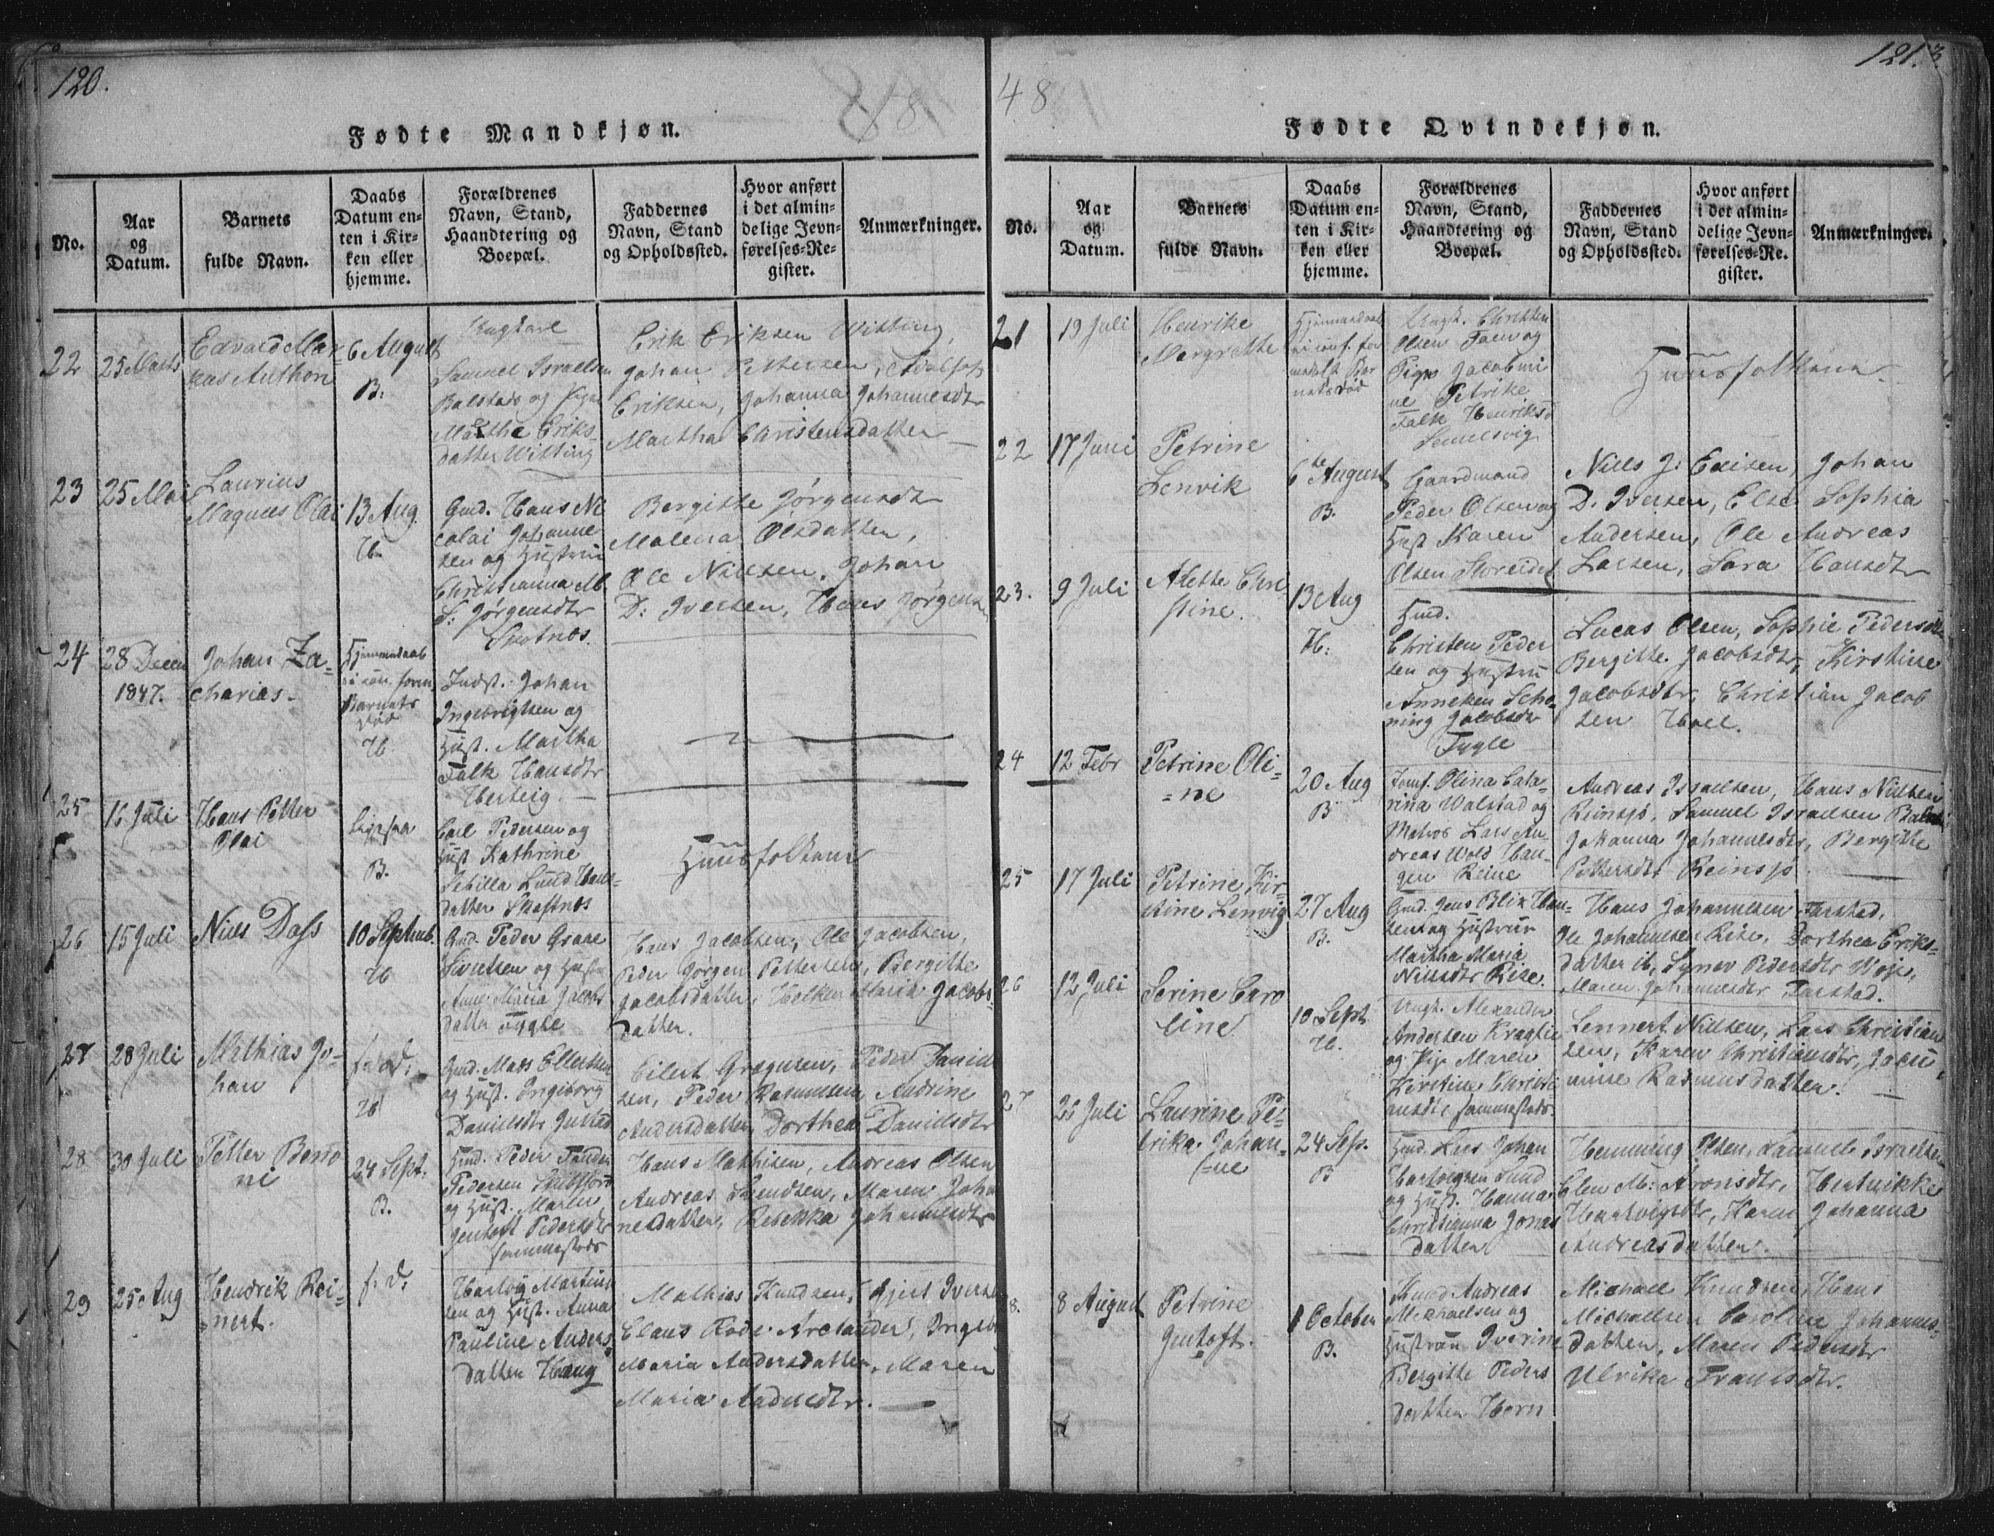 120.
18
48
Fødte Mandkjøn.
No.
Aar
og
Datum.
Barnets
fulde Navn.
Daabs
Datum en-
ten i Kir-
ken eller
hjemme.
Forældrenes
Navn, Stand,
Haandtering og
Boepæl.
Faddernes
Navn, Stand
og Opholdssted.
Hvor anført
i det almin-
delige Jevn-
førelses-Re-
gister.
Anmærkninger.
22
25 Marts
Edvard Mar-
kus Anthon
6 August
B.
Ungkarl
Samuel Israelsen
Balstad og Pige
Marthe Eriks-
datter Witting
Erik Eriksen Witting,
Johan Pettersen, Adolf
Eriksen, Johanna Johannesdtr
Martha Christensdatter
23
25 Mai
Laurius
Magnus Olai
13 Aug.
H.
Gmd. Hans Ni
colai Johanne
sen og Hustrue
Christianna M.
S. Jørgensdtr
Bergitte Jørgensdtr
Malena Olsdatter,
Ole Nielsen, Johan
D: Iversen, Hans Jørgens
24
28 Decem
1847.
Johan Za-
charias.
Hjemmedaab
Barnets
død
H.
Indst. Johan
Ingebrigtsen og
Hust. Martha
Falk Hansdtr
25
16 Juli
Hans Petter
Olai
B.
Carl Pedersen og
Hust Kathrine
Sebilla Lund Hans-
datter Skaftnes
Huusfolkene
26
15 Juli
Niels Dass
10 Septemb.
H
Gmd. Peder Graae
Sivertsen og Hustru
Anne Maria Jacobs
datter Tygle
Hans Jacobsen, Ole Jacobsen,
Peder Jørgen Pettersen, Bergitte
Jacobsdatter, Volken Marie Jacobs
datter.
27
28 Juli
Mathias Jo-
han
f. d.
H
Gmd. Mads Ellertsen
og Hust. Ingeborg
Danielsdtr Justad
Eilert Gregusen, Peder Daniel
sen, Peder Rasmusen, Andrine
Andersdatter, Dorthea Danielsdtr
28
30 Juli
Petter Beno
ni
24 Sept.
B.
Gmd. Peder
Pedersen
og Hust. Maren
Jentoft Pedersdtr
sammesteds
Hans Mathisen, Andreas Olsen
Andreas Svendsen, Maren Johan
nesdatter, Rebekka Johannesdtr
29
25 Aug
Hendrik Rei-
nert.
f. d.
Hartvig Martinus
sen og Hust. Anna
Pauline Anders
datter Haug
Mathias Knudsen, Gjert Iversen
Claus Rode Arctander, Ingeb
Maria Andersdatter, Maren
Maria
121.
Fødte Qvindekjøn.
No.
Aar
og
Datum.
Barnets
fulde Navn.
Daabs
Datum en-
ten i Kir-
ken eller
hjemme.
Forældrenes
Navn, Stand,
Haandtering og
Boepæl.
Faddernes
Navn, Stand
og Opholdssted.
Hvor anført
i det almin-
delige Jevn-
førelses-Re-
gister.
Anmærkninger.
21
19 Juli
Henrike
Margrethe
Hjemmedaab
ei conf. for
medelst Bar
nets død
Ungk. Christen
Olsen Faen og
Pige Jacobmi
ne Petrike
Falk Henriksd
Huusfolkene.
22
17 Juni
Petrine
Lenvik
6te August
B.
Gaardmand
Peder Olsen og
Hust Karen
Olsen Storeidet
Niels J. Edisen, Johan
D. Iversen, Else Sophia
Andersen, Ole Andreas
Larsen, Sara Hansdtr
23.
9 Juli
Alette Chri
stine.
13 Aug
H:
Gmd.
Christen Peder
sen og Hustru
Anneken Sche
ning Jacobsdtr
Tygle
Lucas Olsen, Sophie Pedersdtr
Bergitte Jacobsdtr, Kirstine
Jacobsdtr, Christian Jacob
sen Hoel.
24
12 Febr
Petrine Oli-
ne
20 Aug
B
Jomf. Olina Cata-
rina Walstad og
Matros Lars An-
dreas Wold Hau-
gen Reine
Andreas Israelsen, Hans Nielsen
Reinsjø, Samuel Israelsen Balstad
Johanna Johannesdtr, Bergitte
Pettersdtr Reinsjø.
25
17 Juli
Petrine Kir-
stine Lenvig
27 Aug
B.
Gmd. Jens Blix Han-
sen og Hustrue
Martha Maria
Nilsdtr Rise.
Hans Johannesen Farstad,
Ole Johannesen Rise, Dorthea Eriks-
datter ib, Synev Pedersdtr Woje,
Maren Johannesdtr Farstad.
26
12 Juli
Serine Caro
line
10 Sept.
H.
Ungk. Alexander
Andersen Kraglie
og Pige Maren
Kirstine Christi
ansdtr sammesteds
Lennert Nilsen, Lars Christian
sen, Karen Christiansdtr, Jaco
mine Rasmusdatter.
27
26 Juli
Laurine Pe-
trika Johan-
ne
24 Sep.
B
Gmd. Lars Johan
Hartvigsen Sund
og Hust. Hanna
Christianna Jonas
datter
Henning Olsen, Samuel Israelsen
Elen M. Aronsdtr, Hentrikke
Hartvigsdtr, Karen Johanna
Andreasdatter.
28.
8 August
Petrine
Jentoft.
1 October
B.
Knud Andreas
Michaelsen og
Hustrue Iverine
Bergitte Peders
datter Horn
Michael Knudsen, Hans
Michaelsen Caroline Johannes-
datter, Maren Pedersdtr
Ulrika Frantsdtr.